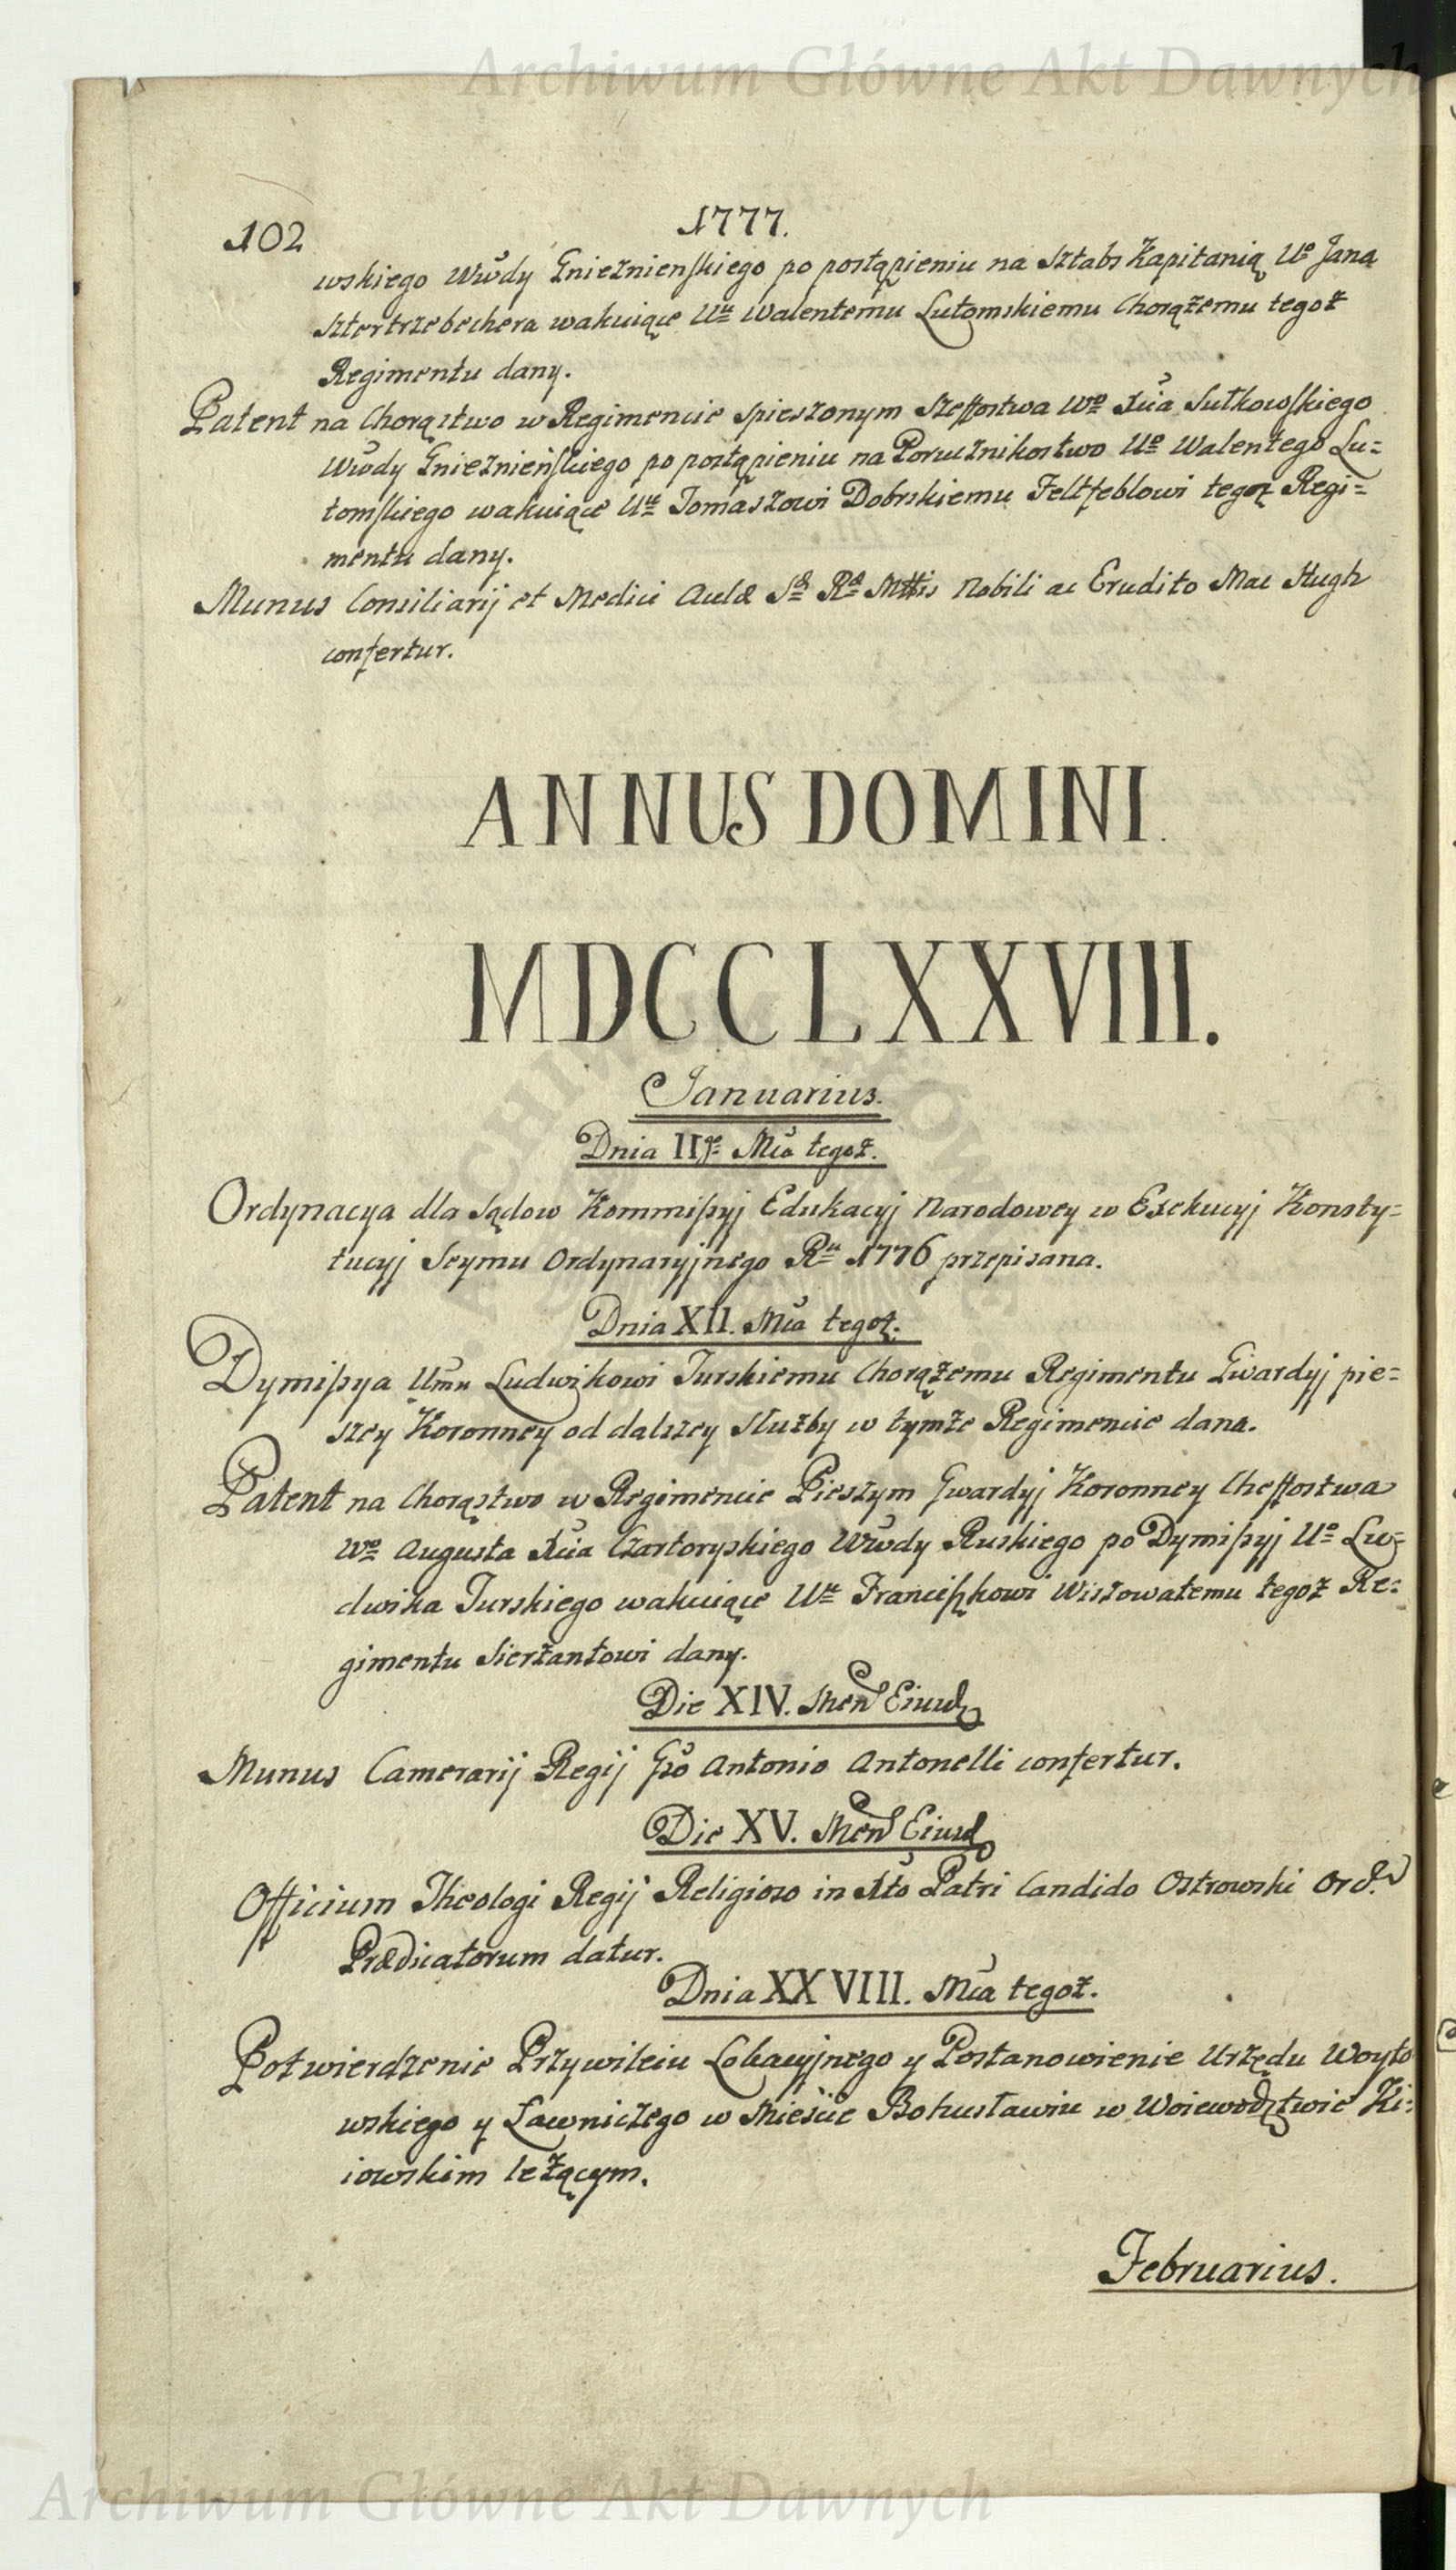 Archiwum Główne Akt Dawnych
102
1777.
wskiego Wwdy Gnieznienskiego po postąpieniu na Sztabs Kapitanią Uo Jana
Sztertrzebechera wakuiące Uu Walentemu Lutomskiemu Chorążemu tegoż
Regimentu dany.
Patent na Chorąstwo w Regimencie spieszonym Szeffostwa Wo Xcia Sułkowskiego
Wwdy Gnieznieńskiego po postąpieniu na Porucznikostwo Uo Walentego Lu=
tomskiego wakuiące Uu Tomaszowi Dobrskiemu Feltfeblowi tegoż Regi=
mentu dany.
Munus Consiliarij et Medici Aulæ Sæ Ræ Mttis Nobili ac Erudito Mac Hugh
confertur.
ANNUS DOMINI.
MDCCLXXVIII.
Januarius.
Dnia II Mca tegoż.
Ordynacya dla Sądow Kommissyj Edukacyj Narodowey w Exekucyj Konsty=
tucyj Seymu Ordynaryjnego Ru 1776 przepisana.
Dnia XII. Mca tegoż.
Dymissya Umu Ludwikowi Turskiemu Chorążemu Regimentu Gwardyj pie=
szey Koronney od dalszey Służby w tymże Regimencie dana.
Patent na Chorąstwo w Regimencie Pieszym Gwardyj Koronney Cheffostwa
Wo Augusta Xcia Czartoryskiego Wwdy Ruskiego po Dymissyj Uo Lu=
dwika Turskiego wakuiące Uu Franciszkowi Wiszowatemu tegoż Re=
gimentu Sierżantowi dany.
Die XIV. Men Eiusd
Munus Camerarij Regij Gso Antonio Antonelli confertur.
Die XV. Men Eiusd
Officium Theologi Regij Religioso in Xto Patri Candido Ostrowski Ord.
Prædicatorum datur.
Dnia XXVIII. Mca tegoż.
Potwierdzenie Przywileiu Lokacyjnego y Postanowienie Urzędu Woyto
wskiego y Ławniczego w Mieście Bohusławiu w Woiewodztwie Ki=
iowskim leżącym.
Februarius.
Archiwum Główne Akt Dawnych